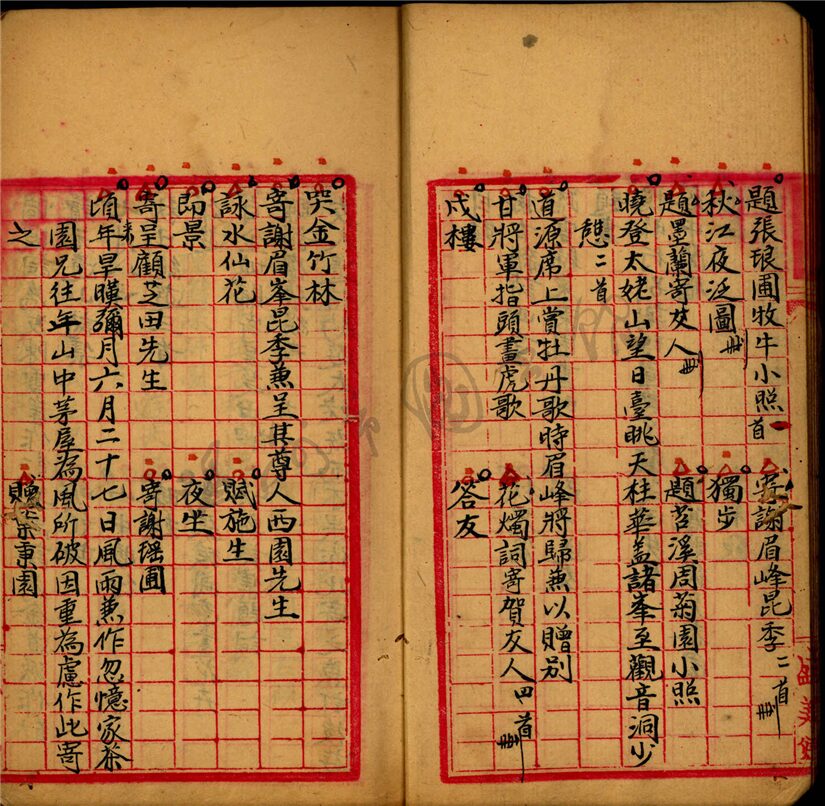 題張琅圃牧牛小照一首 寄謝眉峰昆季二首刪
秋江夜泛圖刪 獨步
題墨蘭寄友人刪 題苕溪周菊園小照
曉登太姥山望日臺眺天柱華蓋諸峯至觀音洞少
憩二首
道源席上賞牡丹歌時眉峰將歸兼以贈別
甘將軍指頭畫虎歌 花燭詞寄賀友人四首刪
戍樓 答友
哭金竹林
寄謝眉峯昆季兼呈其尊人西園先生
詠水仙花 賦施生
即景 夜坐
寄呈顧芝田先生 寄謝瑤圃
頃年來旱暵彌月六月二十七日風雨兼作忽憶家茶
園兄往年山中茅屋為風所破因重為慮作此寄
之 贈 東園